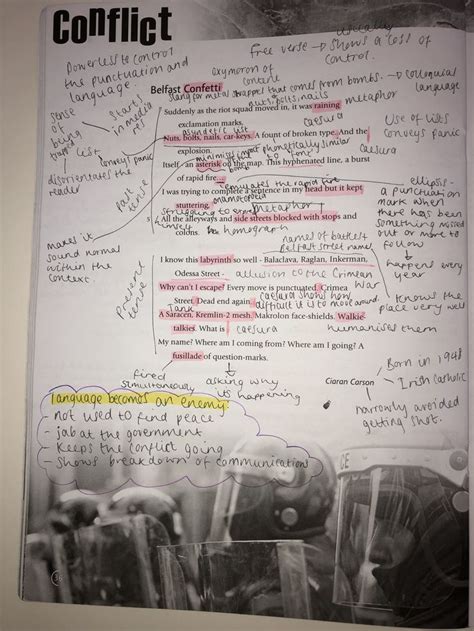 Conflict
usually
free verse → shows a loss of
control.
Powerless to control
the punctuation and
language.
oxymoron of
Belfast Confetti
slang for metal scrapped that comes from bombs. → colloquial
language
nuts, bolts, nails
metaphor
sense
of
being
trapped
Start in
media
res
Suddenly as the riot squad moved in, it was raining
exclamation marks,
caesura
asyndetic list
Nuts, bolts, nails, car-keys. A fount of broken type. And the
explosion
Use of lists
conveys panic
list
convey panic
minimises impact
phonetically similar
to
caesura
Itself - an asterisk on the map. This hyphenated line, a burst
of rapid fire ...
disorientates the
reader
emulates the rapid fire
I was trying to complete a sentence in my head but it kept
stuttering,
onomatopoeia
metaphor
struggling to express
himself
homograph
5
All the alleyways and side streets blocked with stops and
colons.
past
tense
ellipsis -
a punctuation
mark when
there has been
something missed
out or more to
follow
happens every
year
makes it
sound normal
within the
context.
names of battles +
Belfast street names
I know this labyrinth so well - Balaclava, Raglan, Inkerman,
Odessa Street -
allusion to the Crimean
War
Why can't I escape? Every move is punctuated. Crimea
caesura shows how
Street. Dead end again.
difficult it is to move around.
Tank
A Saracen, Kremlin-2 mesh. Makrolon face-shields. Walkie-
talkies. What is
caesura
My name? Where am I coming from? Where am I going? A
fusillade of question-marks.
Present
tense
knows the
place very well
humanises them
fired
simultaneously
asking why
its happening
Ciaran Carson
Born in 1948
Irish catholic
narrowly avoided
getting shot.
language becomes an enemy
- not used to find peace
- jab at the government
- keeps the conflict going
- shows breakdown of communications